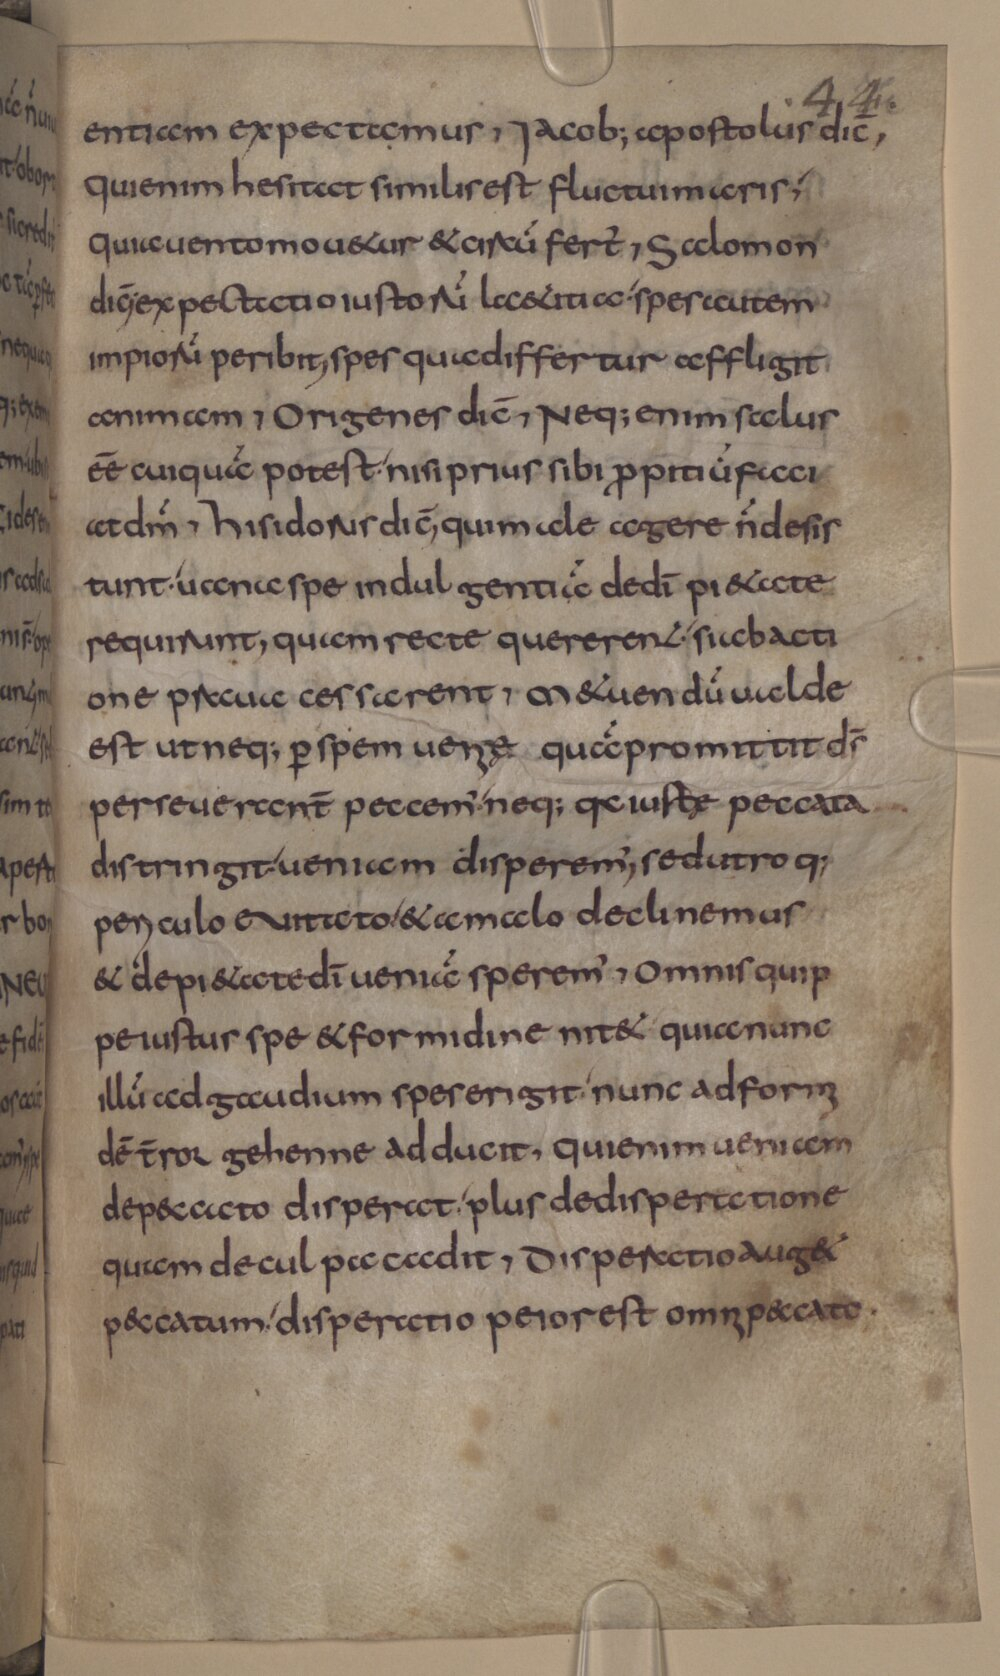 44.
entiam expectamus, Jacob; apostolus dic̄,
Qui enim hesitat similis est fluctui maris;
qui a uento mouetur & circū fert̄, Salomon
dic̄, expectatio iustorū laetitia. spes autem
impiorū peribit, spes quae differtur affligit
animam, Origenes dic̄, Neq; enim saluus
eē cuiquā potest. nisi prius sibi ꝓpitiū faci
at dm̄, hisidorus dic̄, qui male agere n̄ desis
tunt. uana spe indulgentiā de dī pi&ate
requirunt, quam recte quererent. si ab acti
one praua cessarent, M&uendū ualde
est ut neq; ꝑ spem ueniæ quā promittit ds̄
perseuerant̄ peccem̄. neq; q̄a iuste peccata
distringit. ueniam disperem̄, sed utroq;
periculo euitato. & a malo declinemus
& de pi&ate dī ueniā sperem̄, Omnis quip
pe iustus spe & formidine nit& quia nunc
illū ad gaudium spes erigit. nunc ad formi
dē t̄ror gehenne adducit, Qui enim ueniam
de peccato disperat. plus de disperatione
quam de culpa cadit, Disperatio aug&
peccatum. disperatio peior est omni peccato.